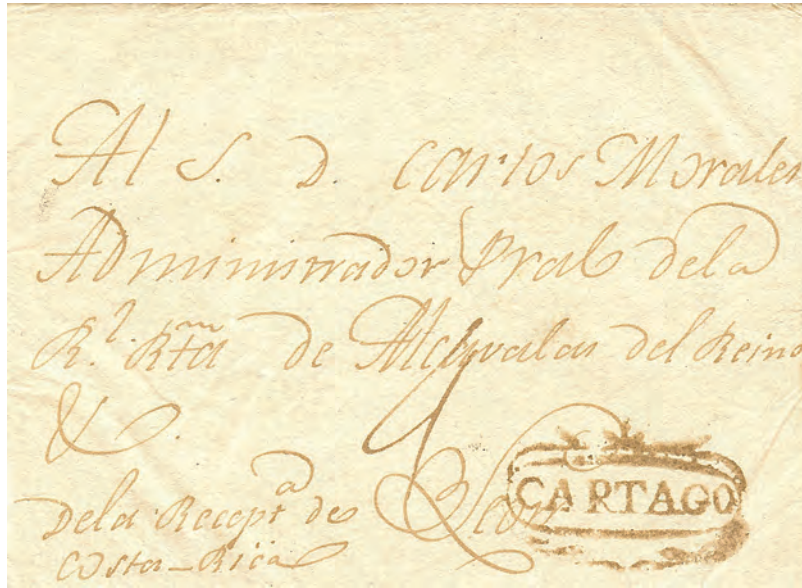 Al S. D. Carlos Morales
Administrador Pral dela
Rl. Rta de Alcavalas del Reino
&.
Dela Recepta de
Costa-Rica
CARTAGO